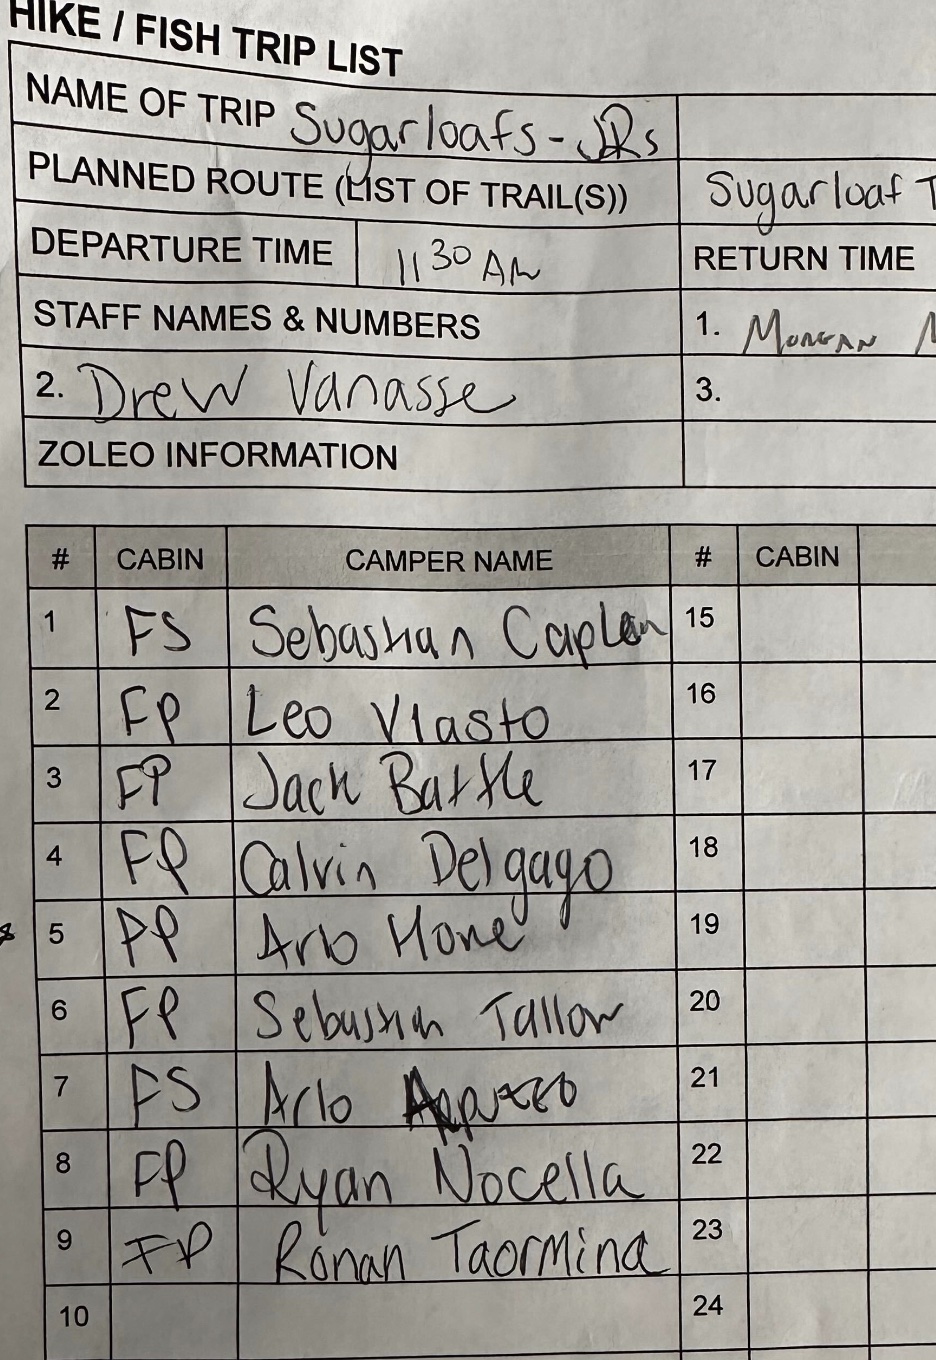 HIKE / FISH TRIP LIST
NAME OF TRIP Sugarloafs - JRs
PLANNED ROUTE (LIST OF TRAIL(S)) Sugarloaf T
DEPARTURE TIME 11 30 AM RETURN TIME
STAFF NAMES & NUMBERS 1. MORGAN M
2. Drew Vanasse 3.
ZOLEO INFORMATION
# CABIN CAMPER NAME # CABIN
1 FS Sebastian Caplan 15
2 FP Leo Vlasto 16
3 FP Jack Battle 17
4 FP Calvin Delgago 18
5 PP Arlo Hone 19
6 FP Sebastian Tallow 20
7 FS Arlo 21
8 FP Ryan Nocella 22
9 FP Ronan Taormina 23
10 24